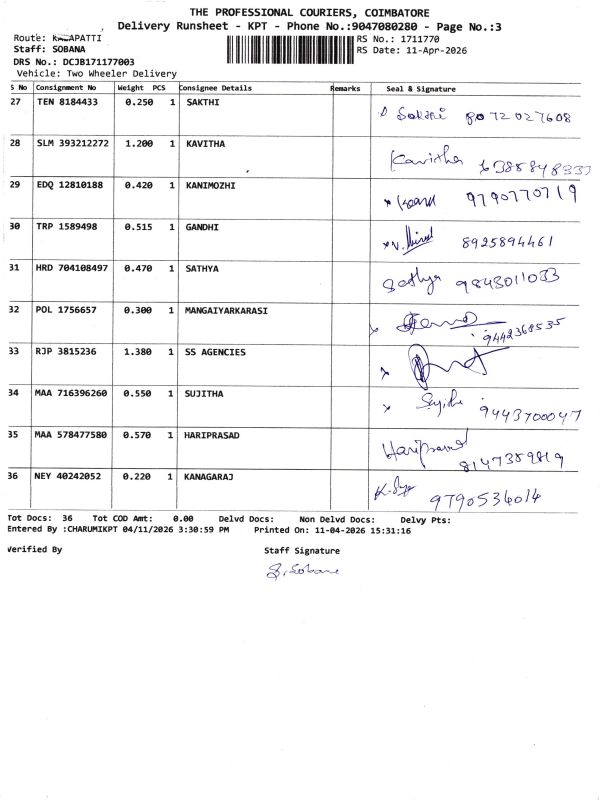 THE PROFESSIONAL COURIERS, COIMBATORE
Delivery Runsheet - KPT - Phone No.:9047080280 - Page No.:3
Route: KALAPATTI
RS No.: 1711770
Staff: SOBANA
RS Date: 11-Apr-2026
DRS No.: DCJB171177003
Vehicle: Two Wheeler Delivery
S No Consignment No Weight PCS Consignee Details Remarks Seal & Signature
27 TEN 8184433 0.250 1 SAKTHI 8072027608
28 SLM 393212272 1.200 1 KAVITHA Kavitha 6385848333
29 EDQ 12810188 0.420 1 KANIMOZHI 9790770719
30 TRP 1589498 0.515 1 GANDHI 8925894461
31 HRD 704108497 0.470 1 SATHYA Sathya 9843011033
32 POL 1756657 0.300 1 MANGAIYARKARASI 9442368535
33 RJP 3815236 1.380 1 SS AGENCIES
34 MAA 716396260 0.550 1 SUJITHA Sujitha 9443700047
35 MAA 578477580 0.570 1 HARIPRASAD Hariprasad 8147359819
36 NEY 40242052 0.220 1 KANAGARAJ 9790534014
Tot Docs: 36 Tot COD Amt: 0.00 Delvd Docs: Non Delvd Docs: Delvy Pts:
Entered By :CHARUMIKPT 04/11/2026 3:30:59 PM Printed On: 11-04-2026 15:31:16
Verified By Staff Signature
S. Sobana